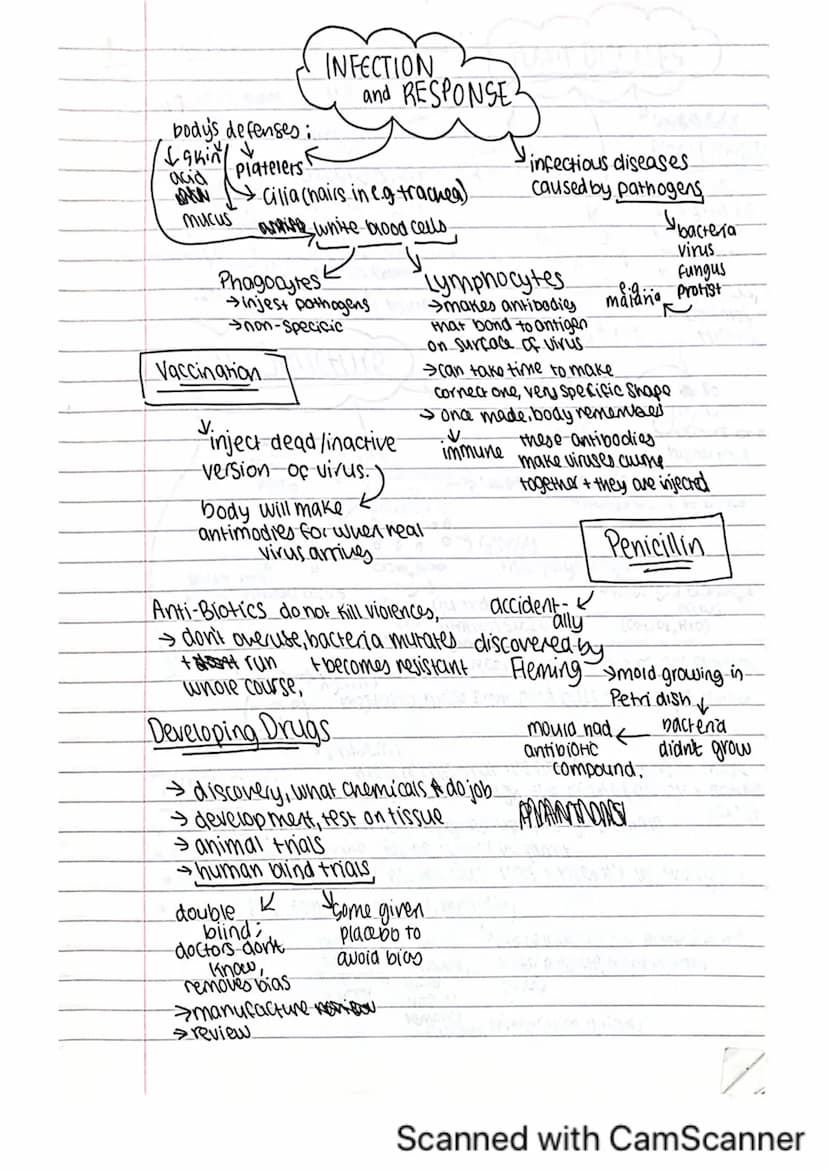 INFECTION
and RESPONSE
body's defenses:
skin
acid
mucus
platelers
cilia (hairs in e.g trachea)
white blood cells
infectious diseases
caused by pathogens
bacteria
virus
fungus
protist
e.g.
malaria
Phagocytes
→ injest pathogens
→ non-specicic
Lymphocytes
→ makes antibodies
that bond to antigen
on surface of virus
→ can take time to make
correct one, very specific shape
→ once made, body remembers
immune
these antibodies
make viruses clump
together + they are injected
Vaccination
inject dead/inactive
version of virus.
body will make
antimodies for when real
virus arrives
Penicillin
accident-
ally
discovered by
Fleming
→ mold growing in
Petri dish
bacteria
didn't grow
mould had
antibiotic
compound.
Anti-Biotics do not kill violences,
→ don't overuse, bacteria mutates
+ run
whole course,
+ becomes resistant
Developing Drugs
→ discovery, what chemicals do job
→ development, test on tissue
→ animal trials
→ human blind trials
double
blind;
doctors don't
know,
removes bias
some given
placebo to
avoid bias
→ manufacture
→ review
Scanned with CamScanner